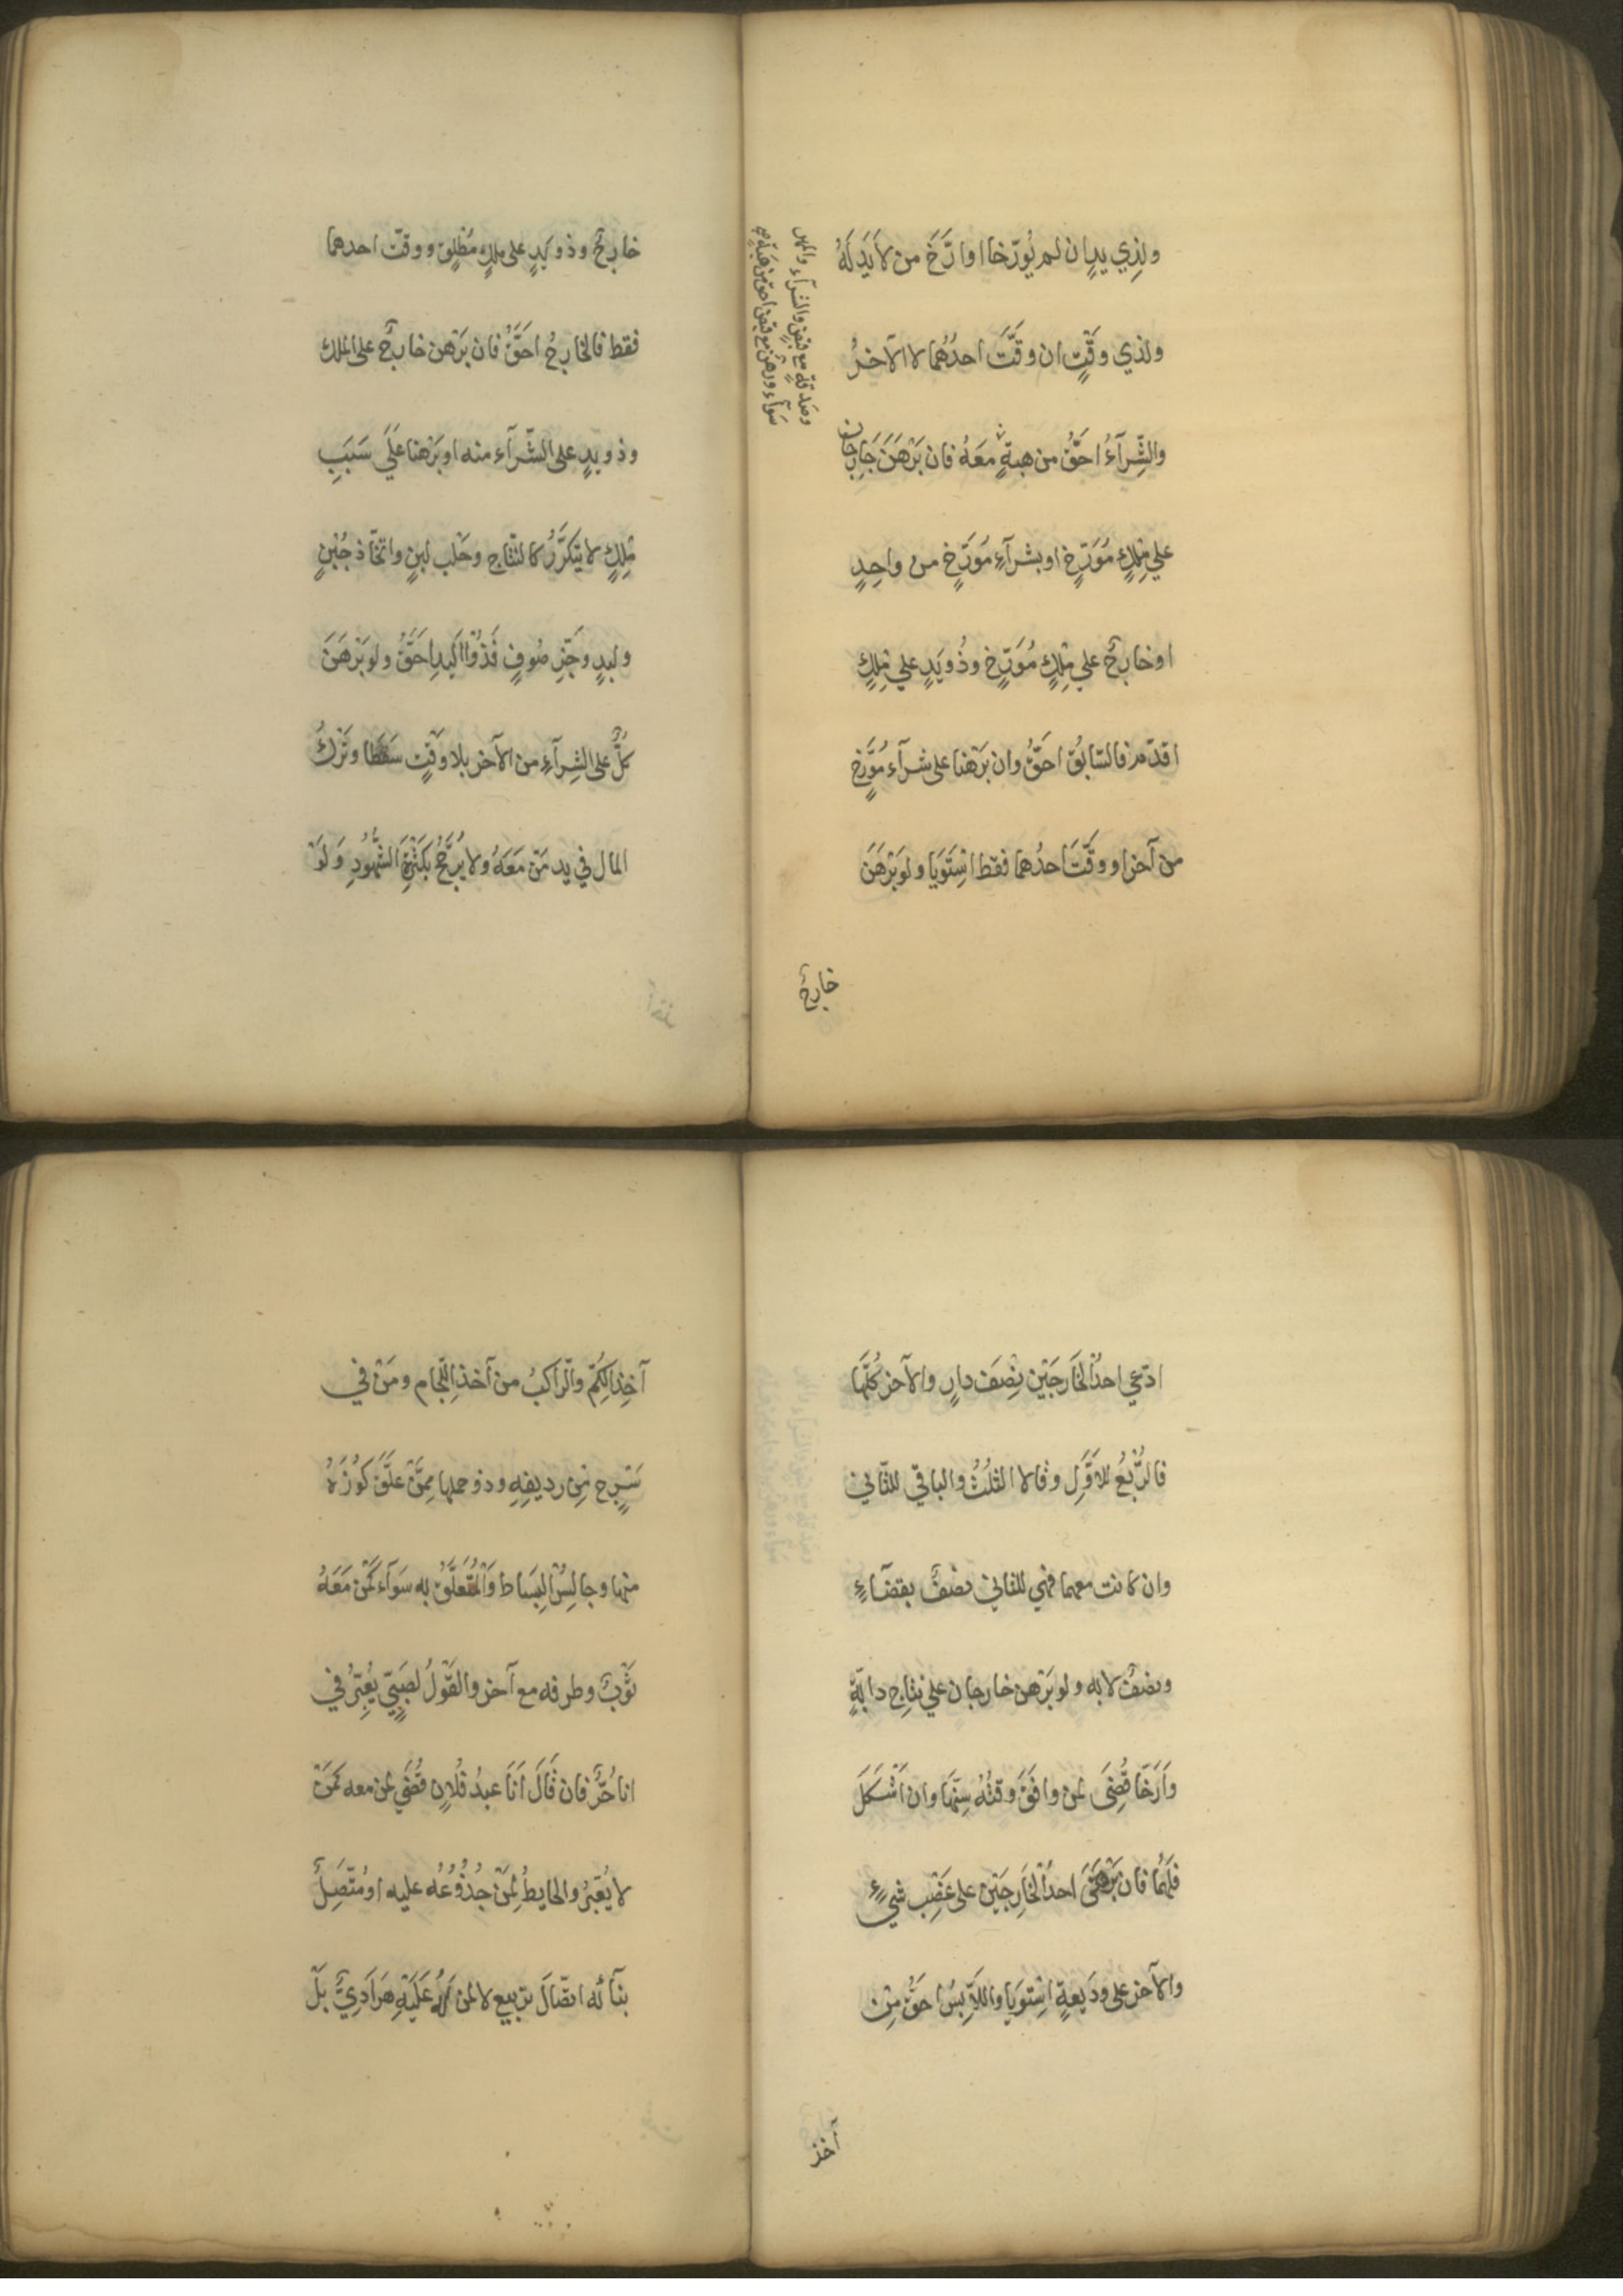 ولذي يدٍ ان لم يُورّخا او ارَّخَ من لا يَدَ لَهُ
ولذي وَقْتٍ ان وقَّتَ احدُهُما لا الآخرُ
والشِّرآءُ احَقُّ من هبةٍ معَهُ فان بَرْهَنَ خارجان
علي مِلكٍ مُوَرّخٍ او بشرآءٍ مُوَرّخٍ من واحِدٍ
او خارجٌ علي مِلكٍ مُوَرّخٍ وذُو يَدٍ علي مِلكٍ
اقدَمَ فالسّابقُ احَقُّ وان بَرْهَنا على شرآءٍ مُوَرَّخٍ
من آخر او وقَّتَ احدُهما فقط اسْتَوَيا ولو بَرْهَنَ
خارجٌ
وصدقةٍ مع قبضٍ والشرآء والمهر
سوآء ورهن مع قبض احق من هبة معه
خارجٌ وذو يَدٍ على ملكٍ مُطْلَقٍ ووقّت احدهما
فقط فالخارجُ احَقُّ فان بَرْهَن خارجٌ على الملك
وذو يدٍ على الشّرآء منه او بَرْهنا عَلَي سَبَبِ
مِلكٍ لا يتكرَّرُ كالنّتاج وحَلْب لبنٍ واتّخاذ جُبْنٍ
ولبدٍ وجَزِّ صُوفٍ فَذُوا اليدِ احَقُّ ولو بَرْهَنَ
كلٌّ على الشِرآءِ من الآخر بلا وَقْتٍ سَقَطا وتُرِكَ
المال في يد مَنْ مَعَهُ ولا يُرَجَّحُ بكَثْرَةِ الشُّهُودِ وَلَوْ
ادّعي احدُ الخارجَيْن نِصْفَ دارٍ والآخر كُلَّها
فالرُّبعُ للاوَّلِ وقالا الثلُثُ والباقي للثّاني
وان كانت معهما فهي للثاني نصْفٌ بقضآءٍ
ونصْفٌ لا به ولو بَرْهن خارجان علي نتاج دابّةٍ
وَاَرَّخا قُضِيَ لمن وافَقَ وقتُهُ سِنّها وان اَشْكَلَ
فلَهُما فان بَرْهَنَ احدُ الخارِجَيْن على غصْبِ شيءٍ
والآخر على ودَيعةٍ اسْتوَيا واللّابِسُ احقُّ مِن
آخذ
آخِذِ الكُمّ والرّاكبُ من آخذِ اللّجام ومَنْ في
سَرْجٍ مِن رديفِهِ وذو حملها مِمَّنْ علَّقَ كُوْزَهُ
منها وجالِسُ البِسَاط والمُتَعلّقُ به سَوآء كَمَنْ مَعَهُ
ثَوْبٌ وطرفه مع آخر والقَوْلُ لصَبِيّ يُعَبِّرُ في
انا حُرٌّ فان قَالَ اَنَا عبدُ فُلانٍ قُضِي لمن معه كمَنْ
لا يُعَبِّرُ والحايِطُ لِمَنْ جُذُوْعُهُ عليه او مُتّصِلٌ
بنآئه اتصّالَ تربيع لا لمن لَهُ عَلَيْهِ هَرَادِيُّ بَلْ